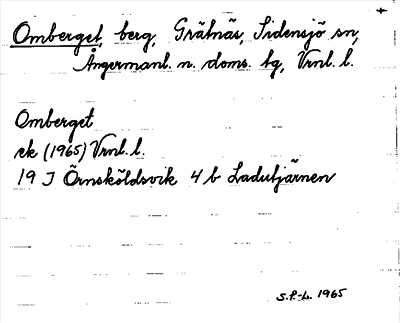 Omberget, berg, Grätnäs, Sidensjö sn,
Ångermanl. n. doms. tg, Vrnl. l.
Omberget
ek (1965) Vrnl. l.
19 J Örnsköldsvik 4 b Ladutjärnen
S.P.-L. 1965